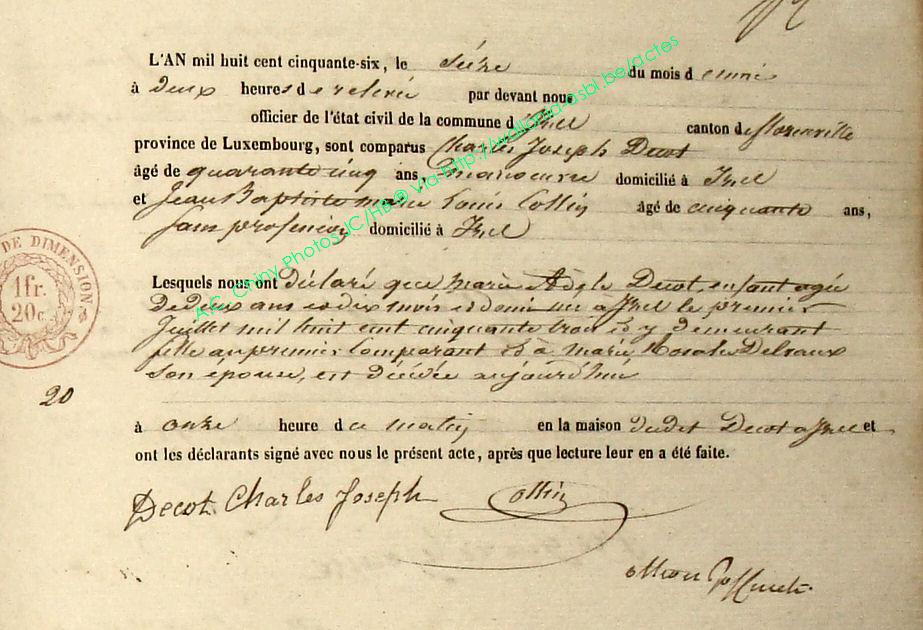 L'AN mil huit cent cinquante-six, le seize du mois de mai
à deux heures de relevé par devant nous
officier de l'état civil de la commune d'Izel canton de florenville
province de Luxembourg, sont comparus Charles Joseph Decot
âgé de quarante cinq ans, manoeuvre domicilié à Izel
et Jean Baptiste marie louis Collin âgé de cinquante ans,
sans profession domicilié à Izel
Lesquels nous ont déclaré que marie Adele Decot enfant agée
de deux ans et dix mois et demi né à Izel le premier
Juillet mil huit cent cinquante trois et y demeurant
fille au premier Comparant et à marie Rosalie Delvaux
son épouse, est décédée aujourd'hui
20
à onze heure du matin en la maison dudit Decot a Izel et
ont les déclarants signé avec nous le présent acte, après que lecture leur en a été faite.
Decot Charles Joseph Collin
DE DIMENSION
1 fr.
20 c.
A.E. Chiny Photos JC/HB® via http://wallonia-asbl.be/actes